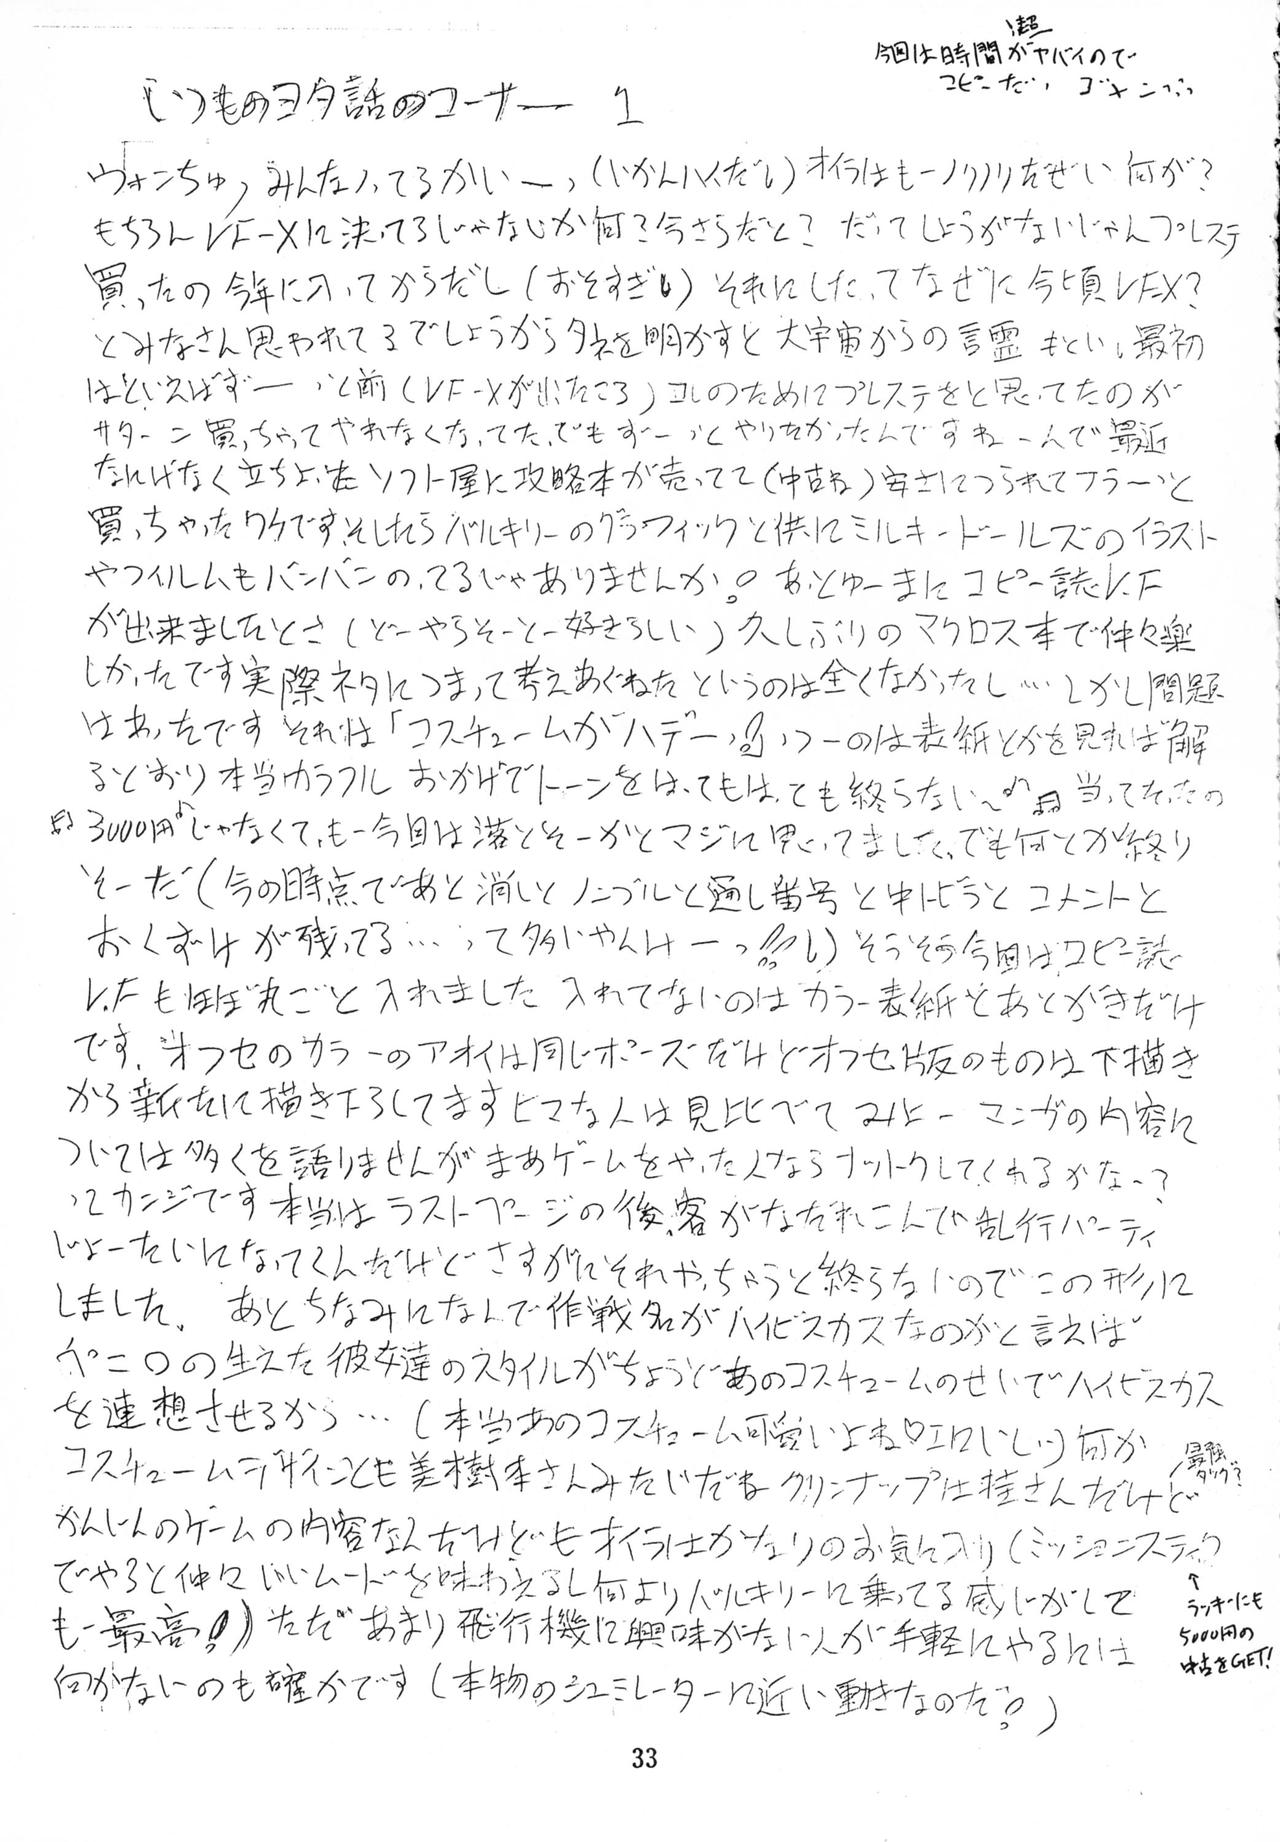 今回は時間が超ヤバイので
コピーだっ ゴメンっっ
いつものヨタ話のコーナー 1
ヴォンちゅっ みんなノってるかいーっ (いかんハイだし) オイラはもーノリノリだぜい 何が?
もちろんVF-Xに決ってるじゃないか何?今さらだと? だってしょうがないじゃんプレステ
買ったの今年に入ってからだし (おそすぎ) それにしたってなぜに今頃VFX?
とみなさん思われてるでしょうからタネを明かすと大宇宙からの言霊 もとい、最初
はといえばずーっと前 (VF-Xが出たころ) コレのためにプレステをと思ってたのが
サターン買っちゃってやれなくなってた、でもずーっとやりたかったんですねーんで最近
なにげなく立ちよった ソフト屋に攻略本が売ってて (中古ね) 安さにつられてフラーっと
買っちゃったワケです、そしたらバルキリーのグラフィックと供にミルキードールズのイラスト
やフィルムもバンバンのってるじゃありませんか!。 あっとゅーまに コピー誌V.F
が出来ましたとさ (どーやらそーとー好きらしい) 久しぶりのマクロス本で仲々楽
しかったです実際ネタにつまって考えあぐねたというのは全くなかったし… しかし問題
はあったです それは「コスチュームがハデーっ!!」っつーのは表紙とかを見れば解
るとおり本当カラフル おかげでトーンをはってもはっても終らない〜♪♫ 当ってたったの
♫3000円♪じゃなくて、もー今回は落とそーかとマジに思ってました、でも何とか終り
そーだ (今の時点であと消しとノンブルと通し番号と中トビラとコメントと
おくずけが残ってる…って多いやんけーっ!!) そうそう今回はコピー誌
V.Fもほぼ丸ごと入れました 入れてないのはカラー表紙とあとがきだけ
です. オフセのカラーのアオイは同じポーズだけどオフセ版のものは下描き
から新たに描き下ろしてますヒマな人は見比べてみよー マンガの内容に
ついては多くを語りませんがまあゲームをやった人ならナットクしてくれるかなー?
ってカンジです本当はラストページの後、客がなだれこんで乱行パーティ
じょーたいになってくんだけどさすがにそれやっちゃうと終らないのでこの形に
しました。 あとちなみになんで作戦名がハイビスカスなのかと言えば
ペニ○の生えた彼女達のスタイルがちょうどあのコスチュームのせいでハイビスカス
を連想させるから… (本当あのコスチューム可愛いよね♡エロいし) 何か
コスチュームデザインとも美樹本さんみたいだね クリンナップは桂さんだけど
最強タッグ?
かんじんのゲームの内容なんだけどもオイラはかなりのお気に入り (ミッションスティック
でやると仲々いいムードを味わえるし何よりバルキリーに乗ってる感じがして
もー最高!) ただあまり飛行機に興味がない人が手軽にやるには
何かないのも確かです (本物のシュミレーターに近い動きなのだ!。)
↑
ラッキーにも
5000円の
中古をGET!
33